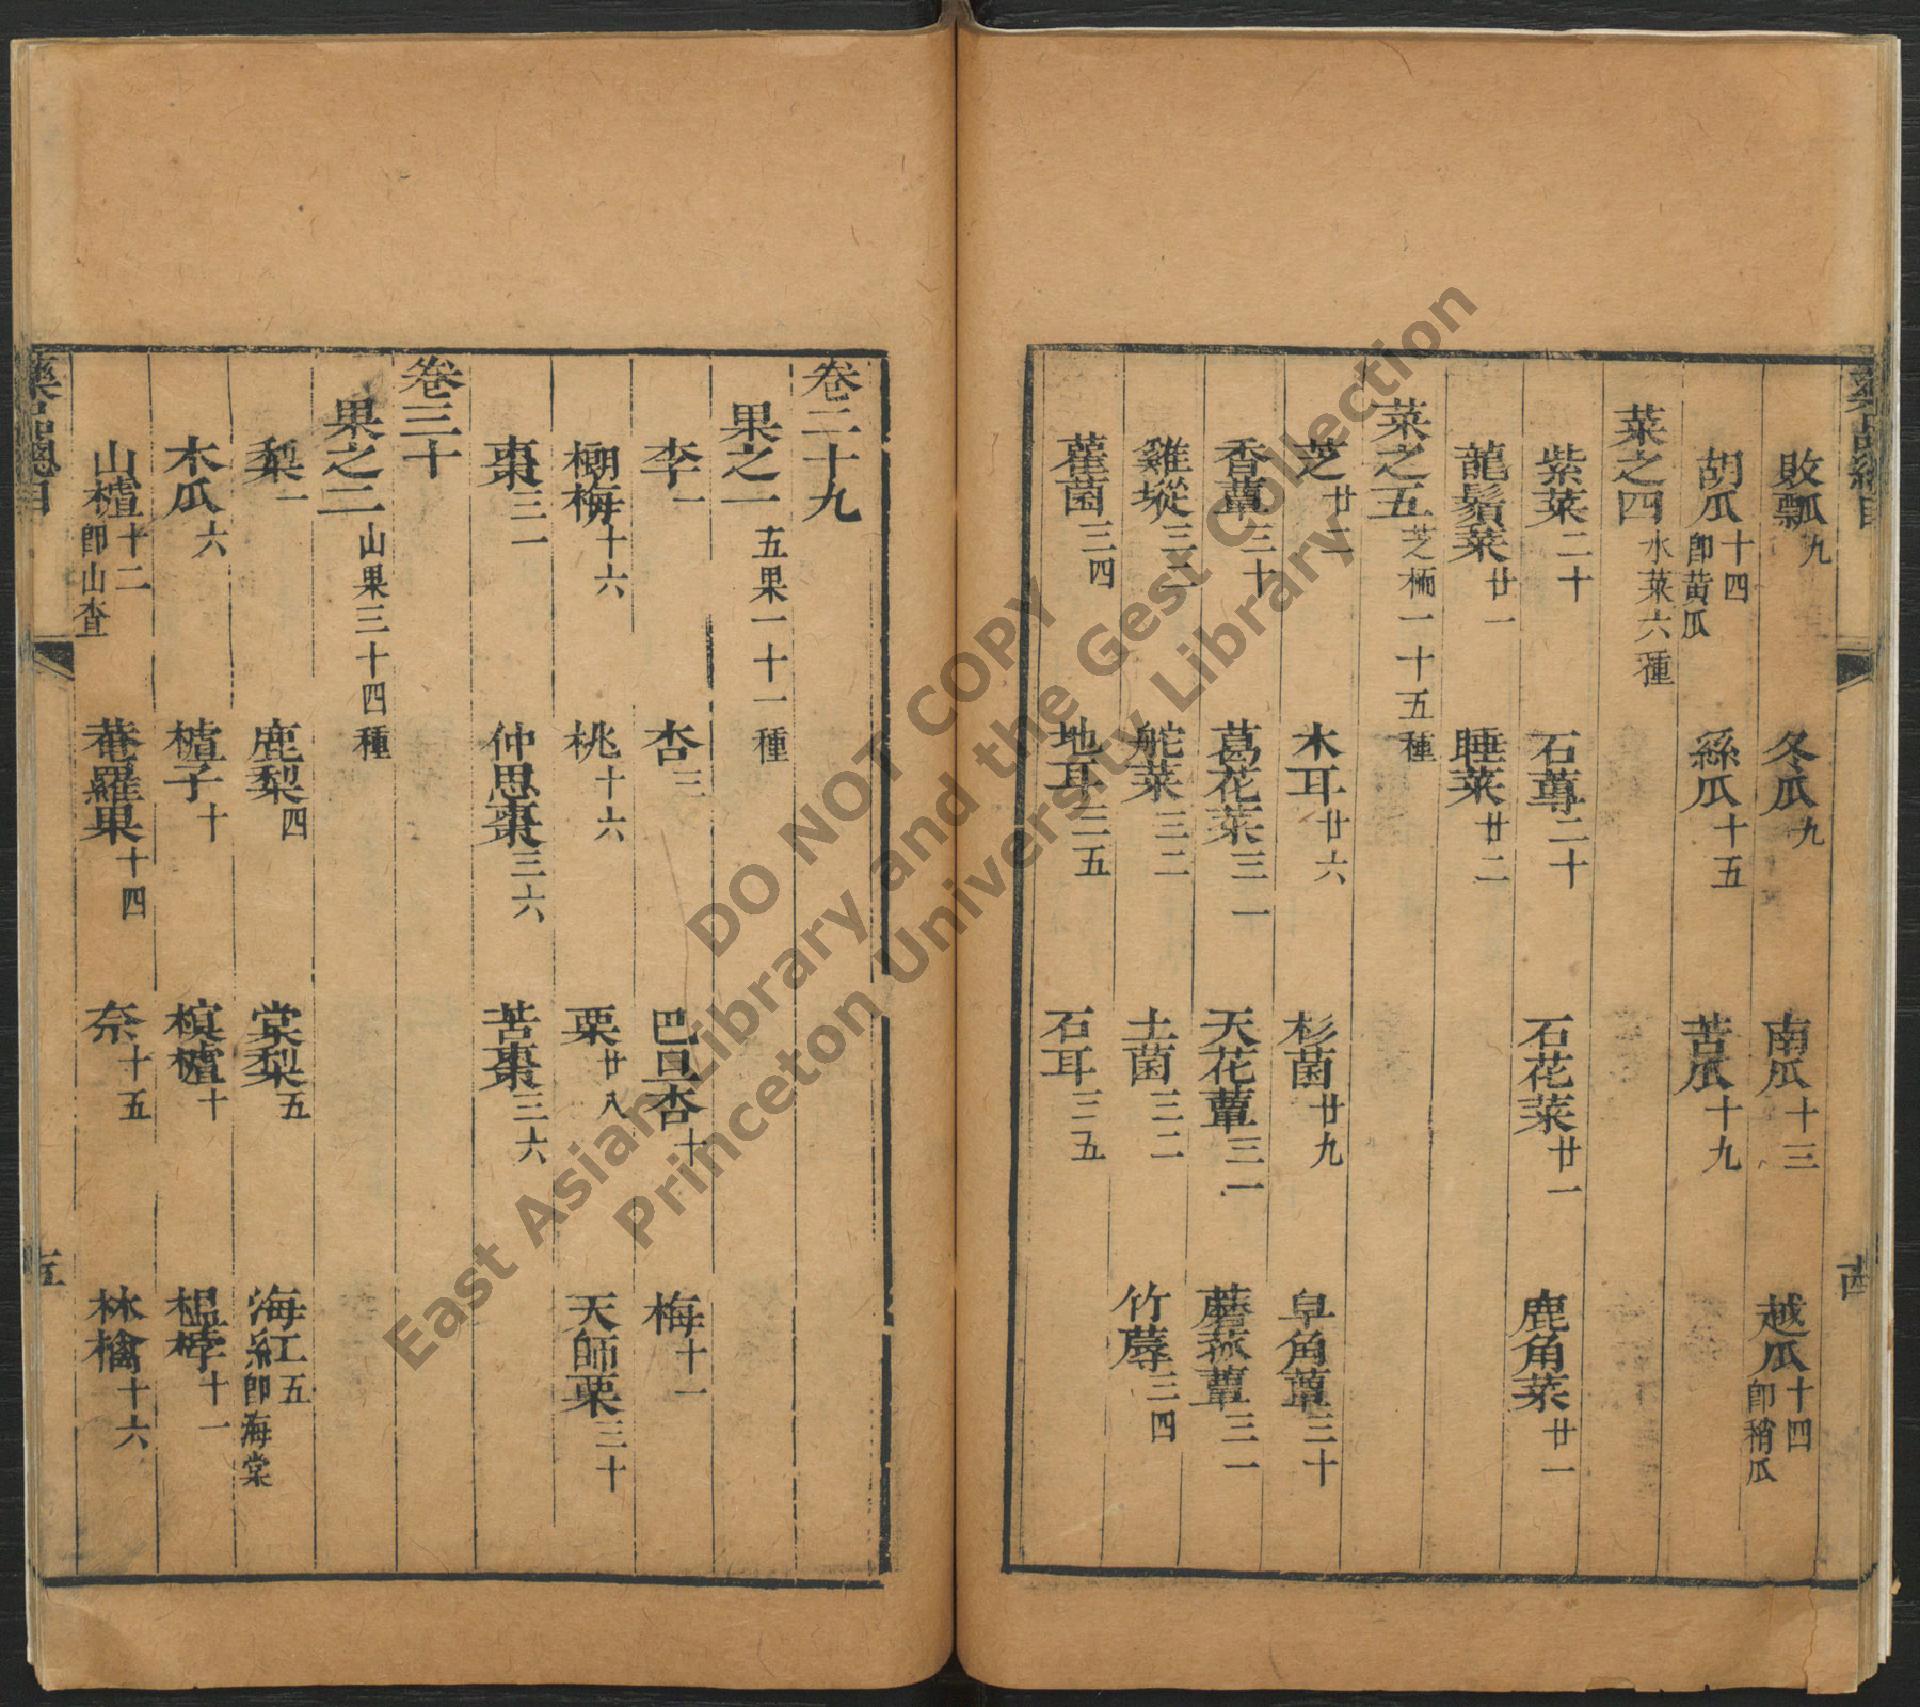 敗瓢九 冬瓜九 南瓜十三 越瓜十四即稍瓜
胡瓜十四即黄瓜 絲瓜十五 苦瓜十九
菜之四水菜六種
紫菜二十 石蓴二十 石花菜廿一 鹿角菜廿一
龍鬚菜廿一 睡菜廿二
菜之五芝栭一十五種
芝廿二 木耳廿六 杉菌廿九 皁角蕈三十
香蕈三十 葛花菜三一 天花蕈三一 蘑菰蕈三一
雞㙡三二 舵菜三二 土菌三二 竹蓐三四
雚菌三四 地耳三五 石耳三五
卷二十九
果之一五果一十一種
李一 杏三 巴旦杏十 梅十一
榔梅十六 桃十六 栗廿八 天師栗三十
棗三一 仲思棗三六 苦棗三六
卷三十
果之二山果三十四種
梨一 鹿梨四 棠梨五 海紅五即海棠
木瓜六 樝子十 榠樝十 榲桲十一
山樝十二即山查 菴羅果十四 柰十五 林檎十六
藥品總目 五
DO NOT COPY
East Asian Library and the Gest Collection
Princeton University Library